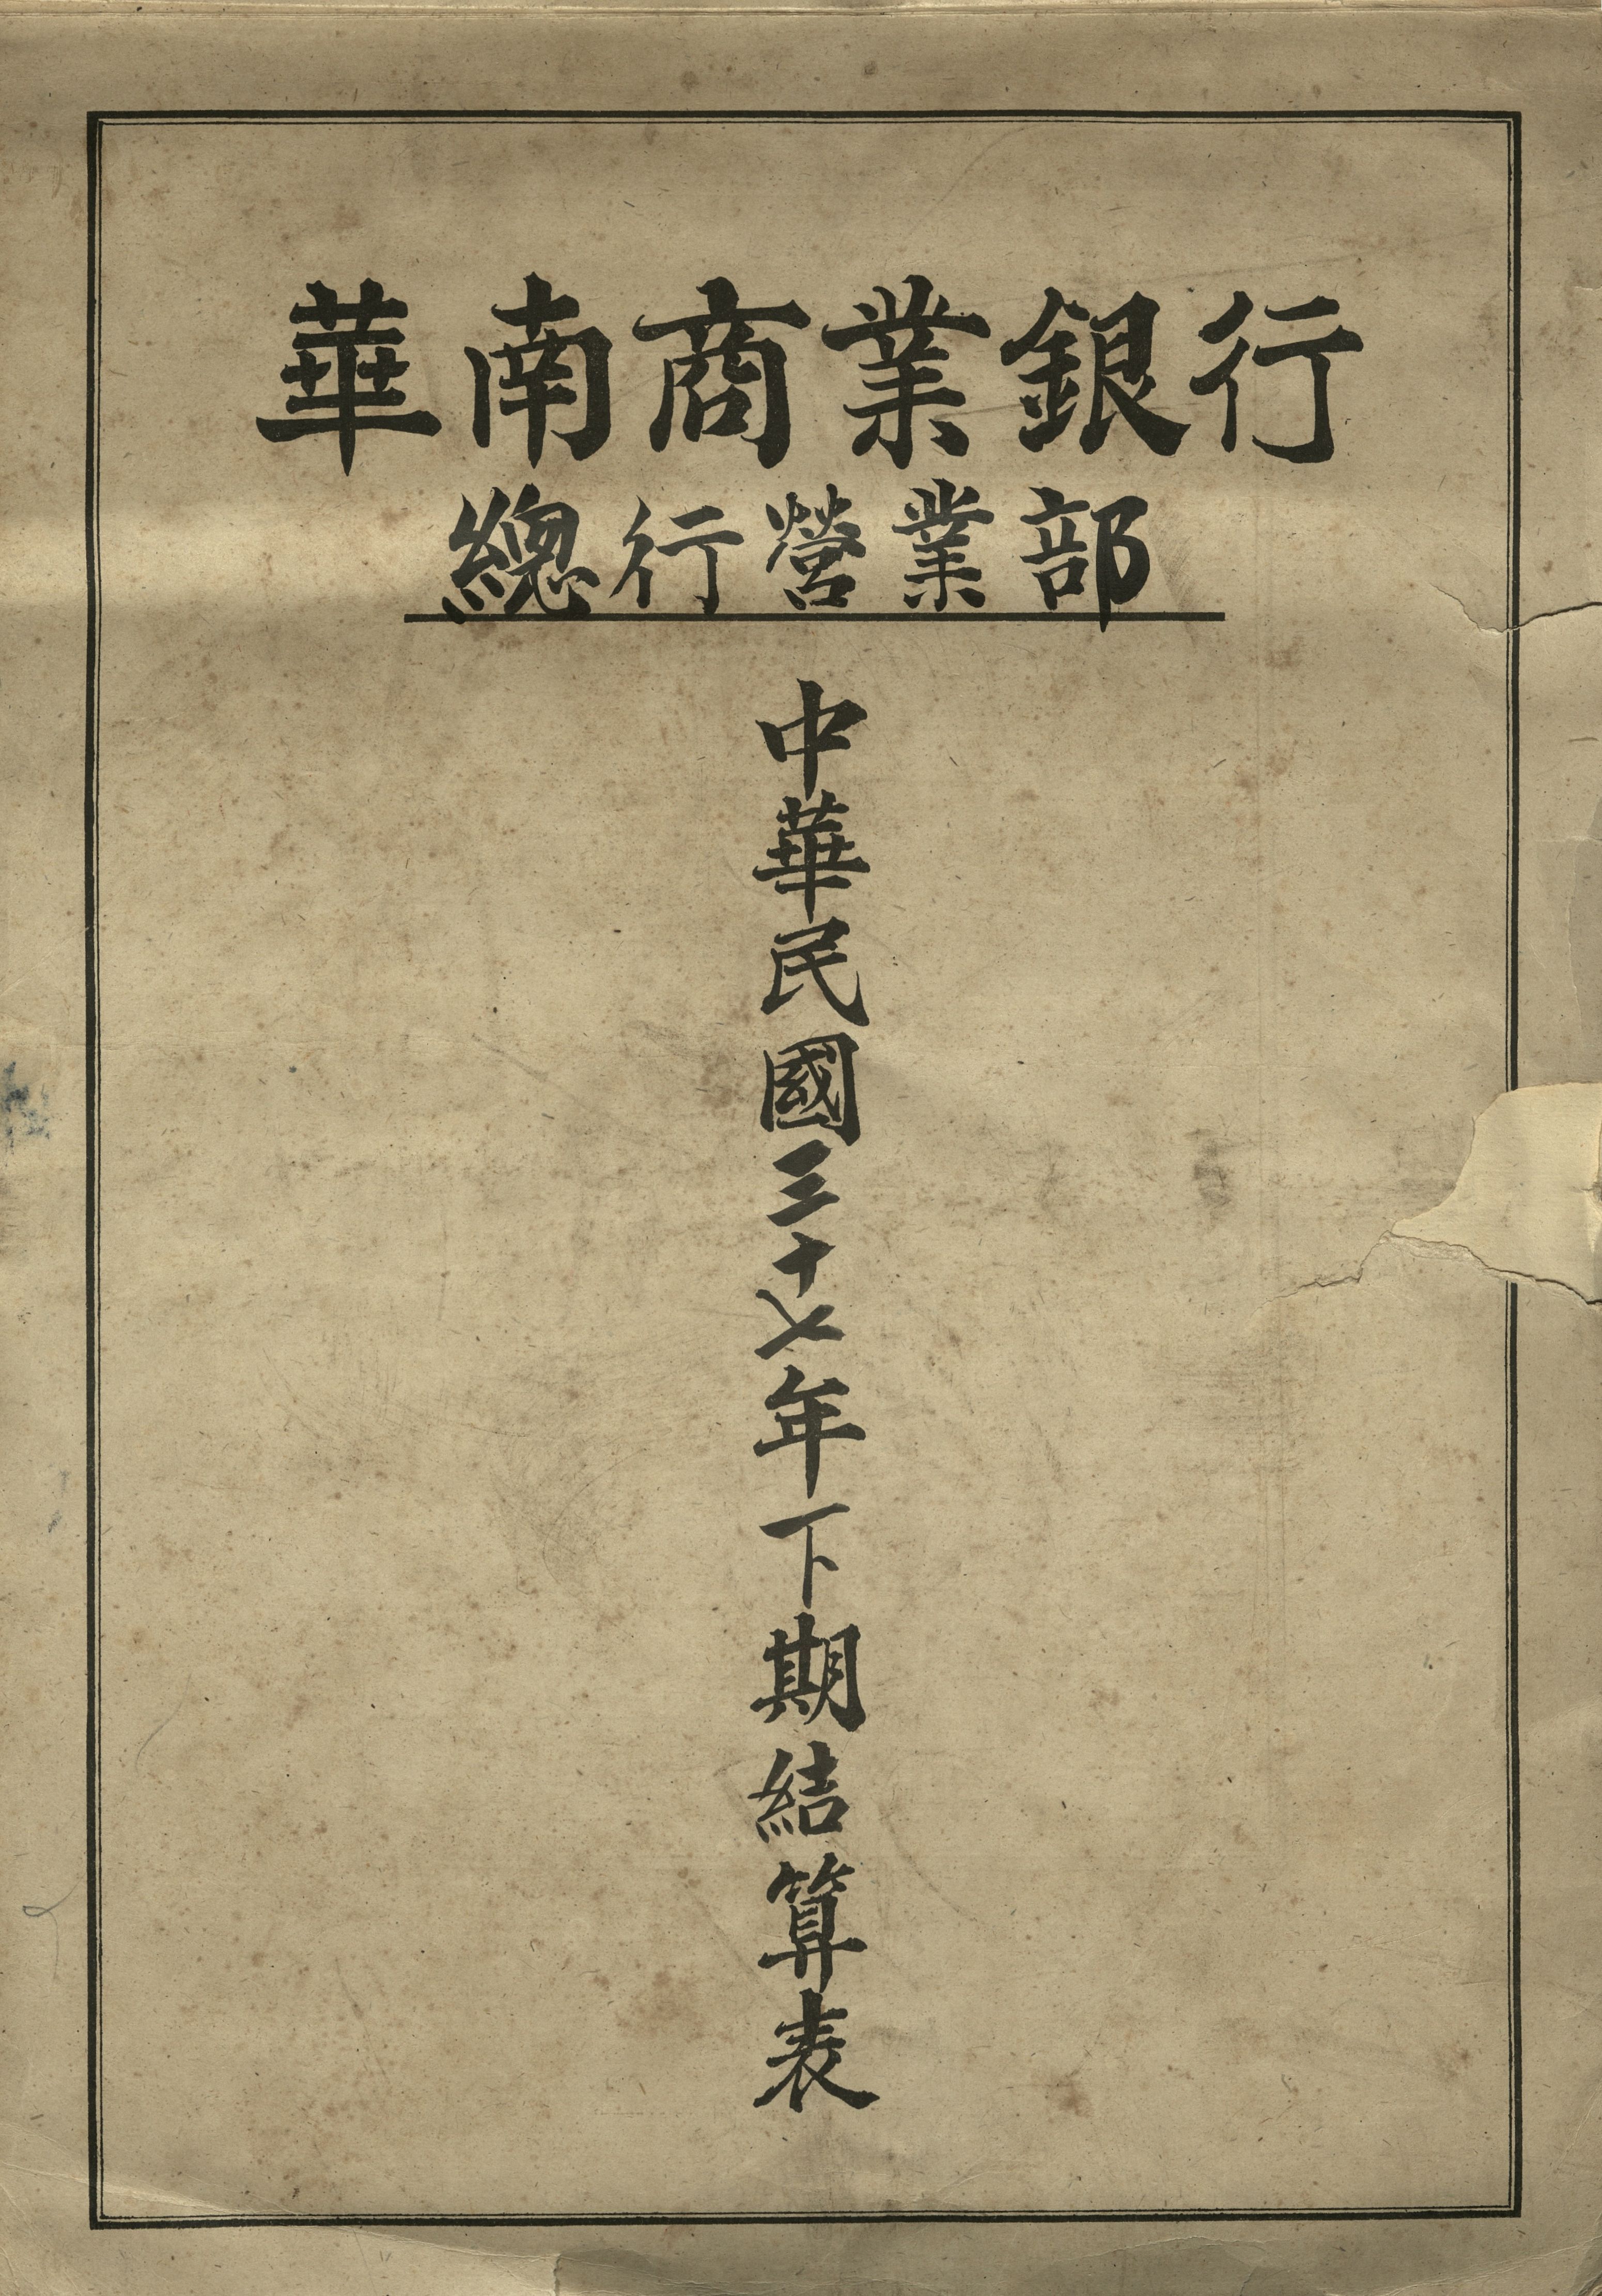 華南商業銀行
總行營業部
中華民國三十七年下期結算表